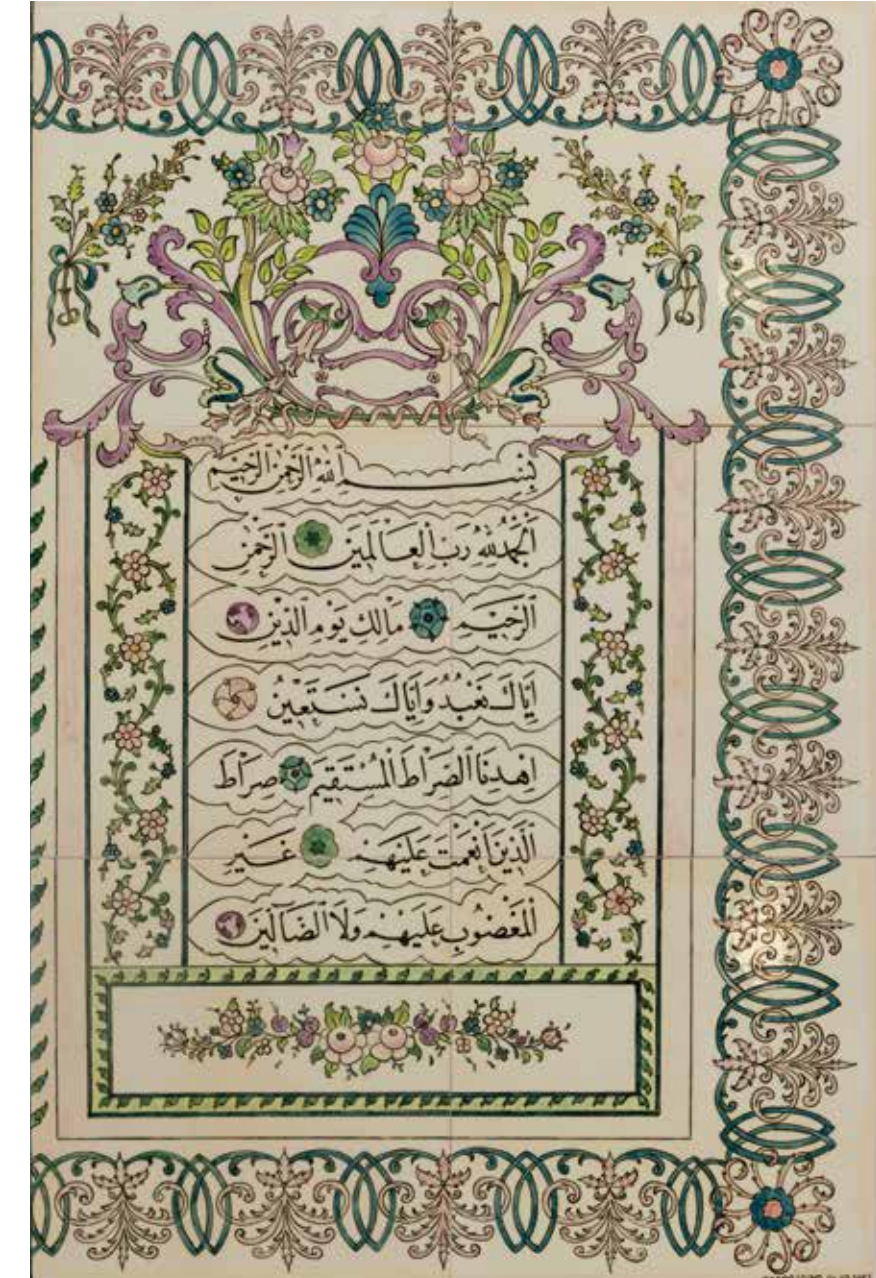 بِسْمِ ٱللّٰهِ ٱلرَّحْمٰنِ ٱلرَّحِيمِ
اَلْحَمْدُ لِلّٰهِ رَبِّ ٱلْعَالَمِينَ ٱلرَّحْمٰنِ
ٱلرَّحِيمِ مَالِكِ يَوْمِ ٱلدِّينِ
اِيَّاكَ نَعْبُدُ وَاِيَّاكَ نَسْتَعِينُ
اِهْدِنَا ٱلصِّرَاطَ ٱلْمُسْتَقِيمَ صِرَاطَ
ٱلَّذِينَ اَنْعَمْتَ عَلَيْهِمْ غَيْرِ
ٱلْمَغْضُوبِ عَلَيْهِمْ وَلَا ٱلضَّالِّينَ